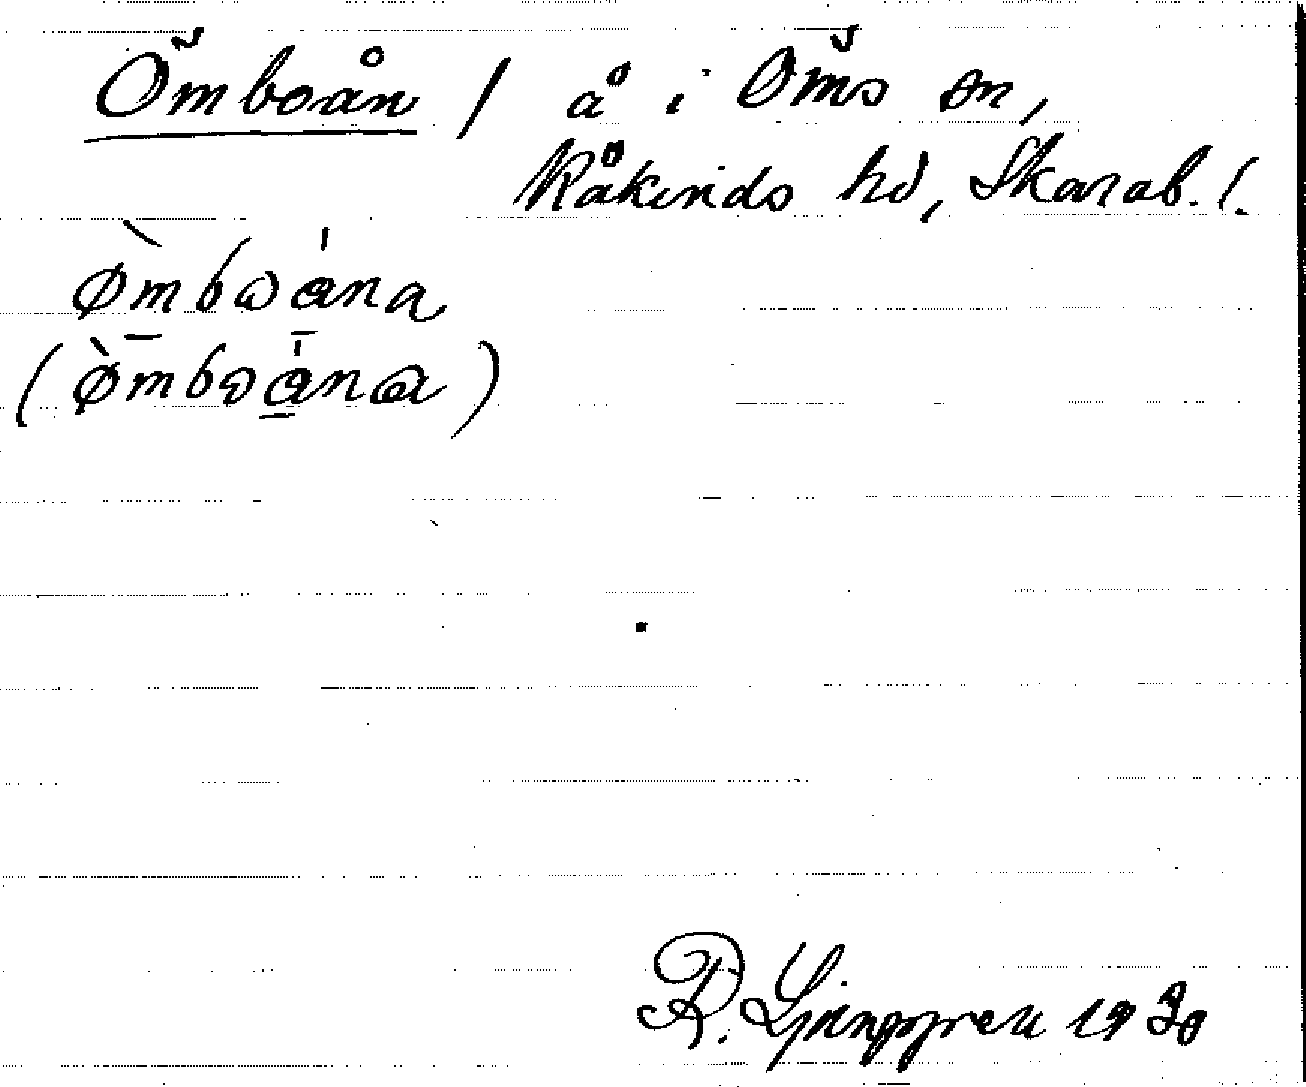 Ömboån / å i Öms sn,
Kåkinds hd, Skarab. l.
ø̀mbωánа
(ø̀mbωánα)
R. Ljunggren 1930